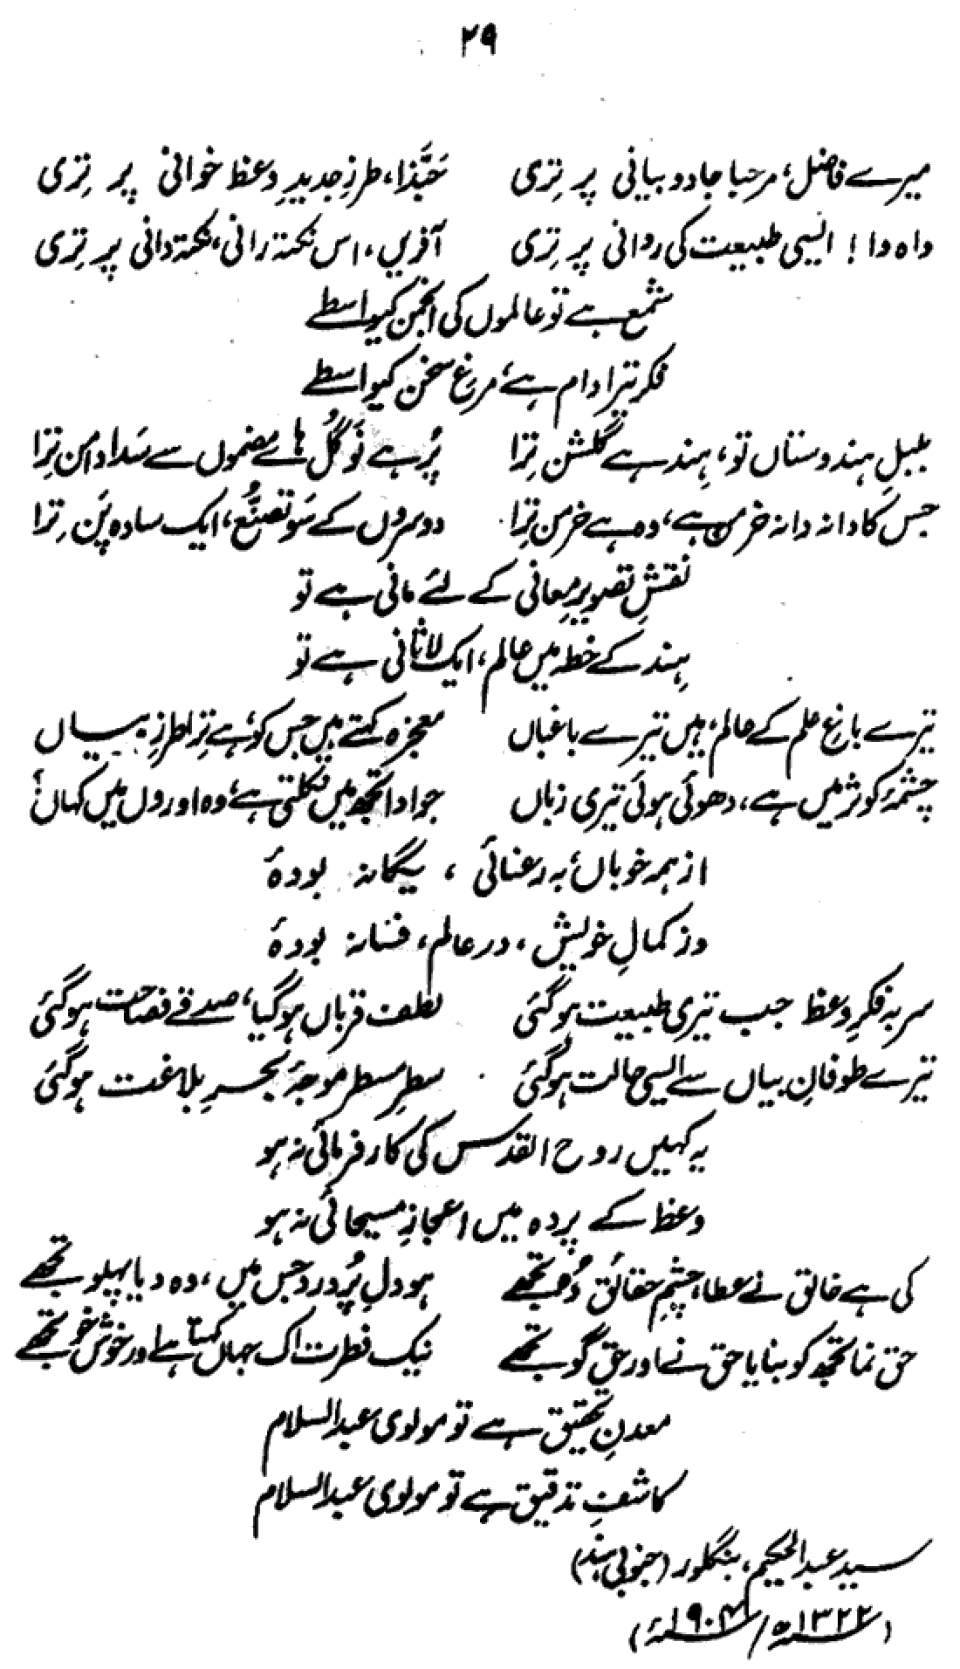 ۲۹
میرے فاضل، مرحبا جادو بیانی پر تِری    حَبَّذا، طرزِ جدیدِ وعظ خوانی پر تِری
واہ وا! ایسی طبیعت کی روانی پر تِری    آفریں، اس نکتہ رانی، نکتہ دانی پر تِری
شمع ہے تو عالموں کی انجمن کیواسطے
فکر تیرا دام ہے، مرغِ سخن کیواسطے
بلبلِ ہندوستاں تو، ہِند ہے گلشن تِرا    پُر ہے نَو گُل ہائے مضموں سے سَدا دامن تِرا
جس کا دانہ دانہ خرمن ہے، وہ ہے خرمن تِرا    دوسروں کے سَو تصنُّع، ایک سادہ پَن تِرا
نقشِ تصویرِ معانی کے لئے مانی ہے تو
ہِند کے خطہ میں عالم، ایک لاثانی ہے تو
تیرے باغِ علم کے عالم، ہیں تیرے باغباں    معجزہ کہتے ہیں جس کو، ہے تِرا طرزِ بیاں
چشمۂ کوثر میں ہے، دھوئی ہوئی تیری زباں    جو ادا تجھ میں نکلتی ہے، وہ اوروں میں کہاں؟
از ہمہ خوباں بہ رعنائی، یگانہ بودۂ
وز کمالِ خویش، در عالم، فسانہ بودۂ
سر بہ فکرِ وعظ جب تیری طبیعت ہو گئی    لطف قرباں ہو گیا، صدقے فصاحت ہو گئی
تیرے طوفانِ بیاں سے ایسی حالت ہو گئی    سطر سطر موجۂ بحرِ بلاغت ہو گئی
یہ کہیں روح القدس کی کارفرمائی نہ ہو
وعظ کے پردہ میں اعجازِ مسیحائی نہ ہو
کی ہے خالق نے عطا، چشمِ حقائق جُو تجھے    ہو دلِ پُر درد جس میں، وہ دیا پہلو تجھے
حق نما تجھ کو بنایا حق نے اور حق گو تجھے    نیک فطرت اک جہاں کہتا ہے اور خوش خو تجھے
معدنِ تحقیق ہے تو مولوی عبدالسلام
کاشفِ تدقیق ہے تو مولوی عبدالسلام
سید عبدالحکیم، بنگلور (جنوبی ہند)
(۱۳۲۲ھ/۱۹۰۴ء)